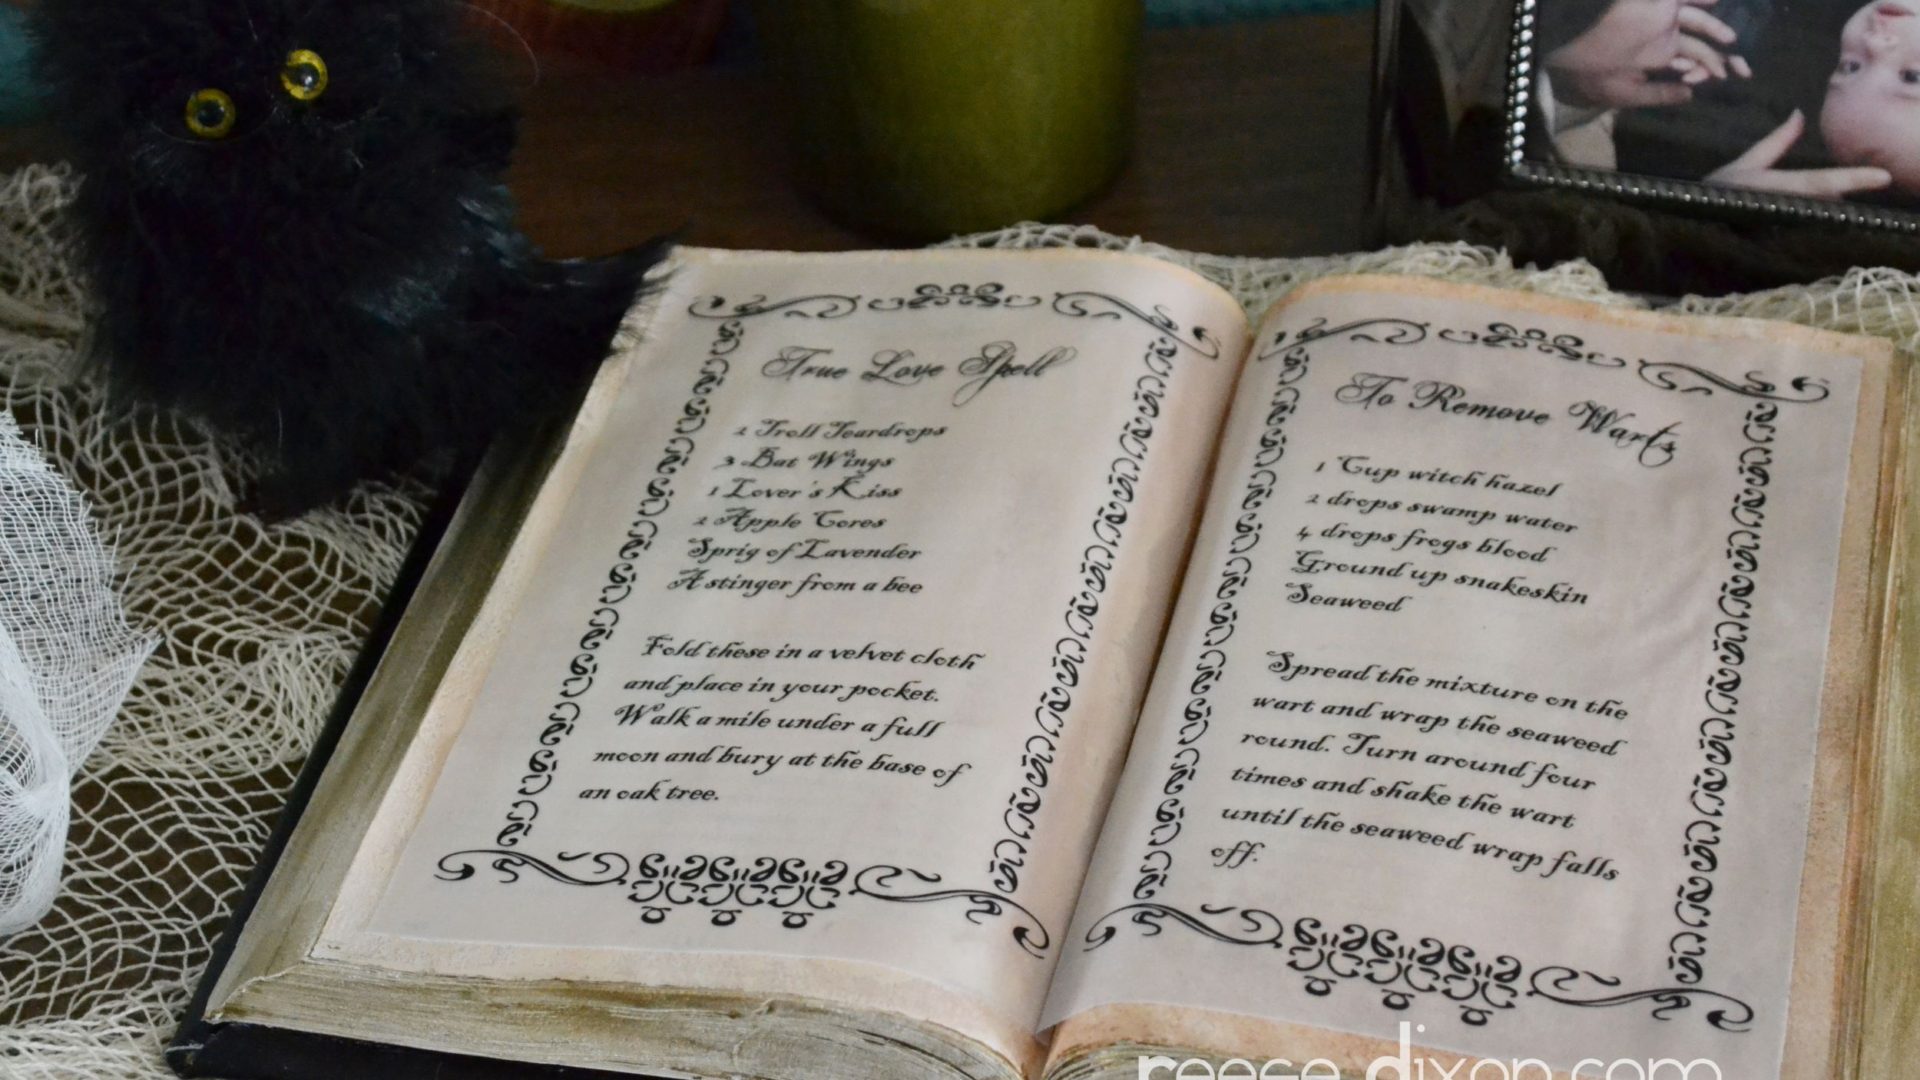 True Love Spell
2 Troll Teardrops
3 Bat Wings
1 Lover's Kiss
2 Apple Cores
Sprig of Lavender
A stinger from a bee
Fold these in a velvet cloth
and place in your pocket.
Walk a mile under a full
moon and bury at the base of
an oak tree.
To Remove Warts
1 Cup witch hazel
2 drops swamp water
4 drops frogs blood
Ground up snakeskin
Seaweed
Spread the mixture on the
wart and wrap the seaweed
round. Turn around four
times and shake the wart
until the seaweed wrap falls
off.
reese dixon.com